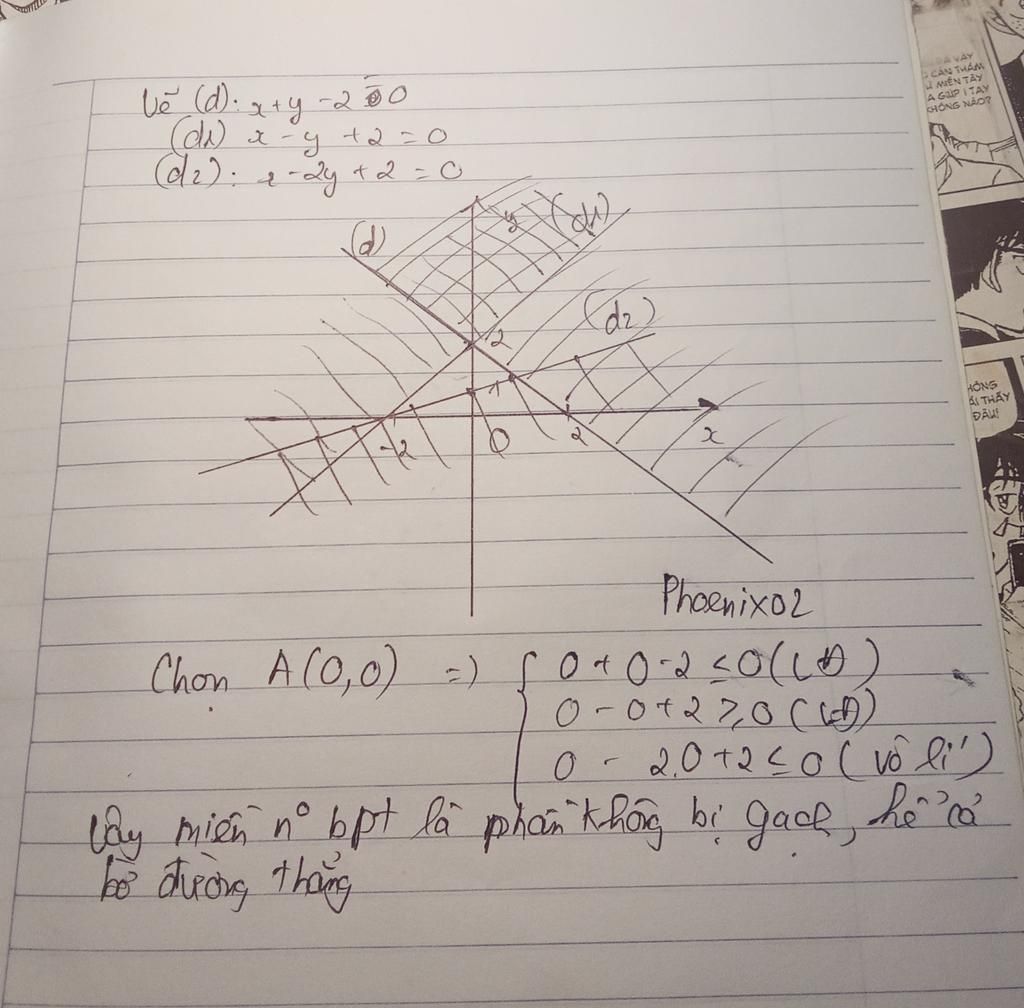 Vẽ (d): x+y-2=0
(d1) x-y+2=0
(d2): x-2y+2=0
y
(d)
(d1)
2
(d2)
1
-2
0
2
x
Phoenix02
Chọn A(0,0) =) { 0+0-2 ≤ 0 (LĐ)
0-0+2 ≥ 0 (LĐ)
0-2.0+2 ≤ 0 (vô lí)
Vậy miền n° bpt là phần không bị gạch, kể cả
bờ đường thẳng
CẦN THÁM
MIÊN TÂY
A GIÚP I TAY
KHÔNG NÀO?
THẤY
ĐÂU!